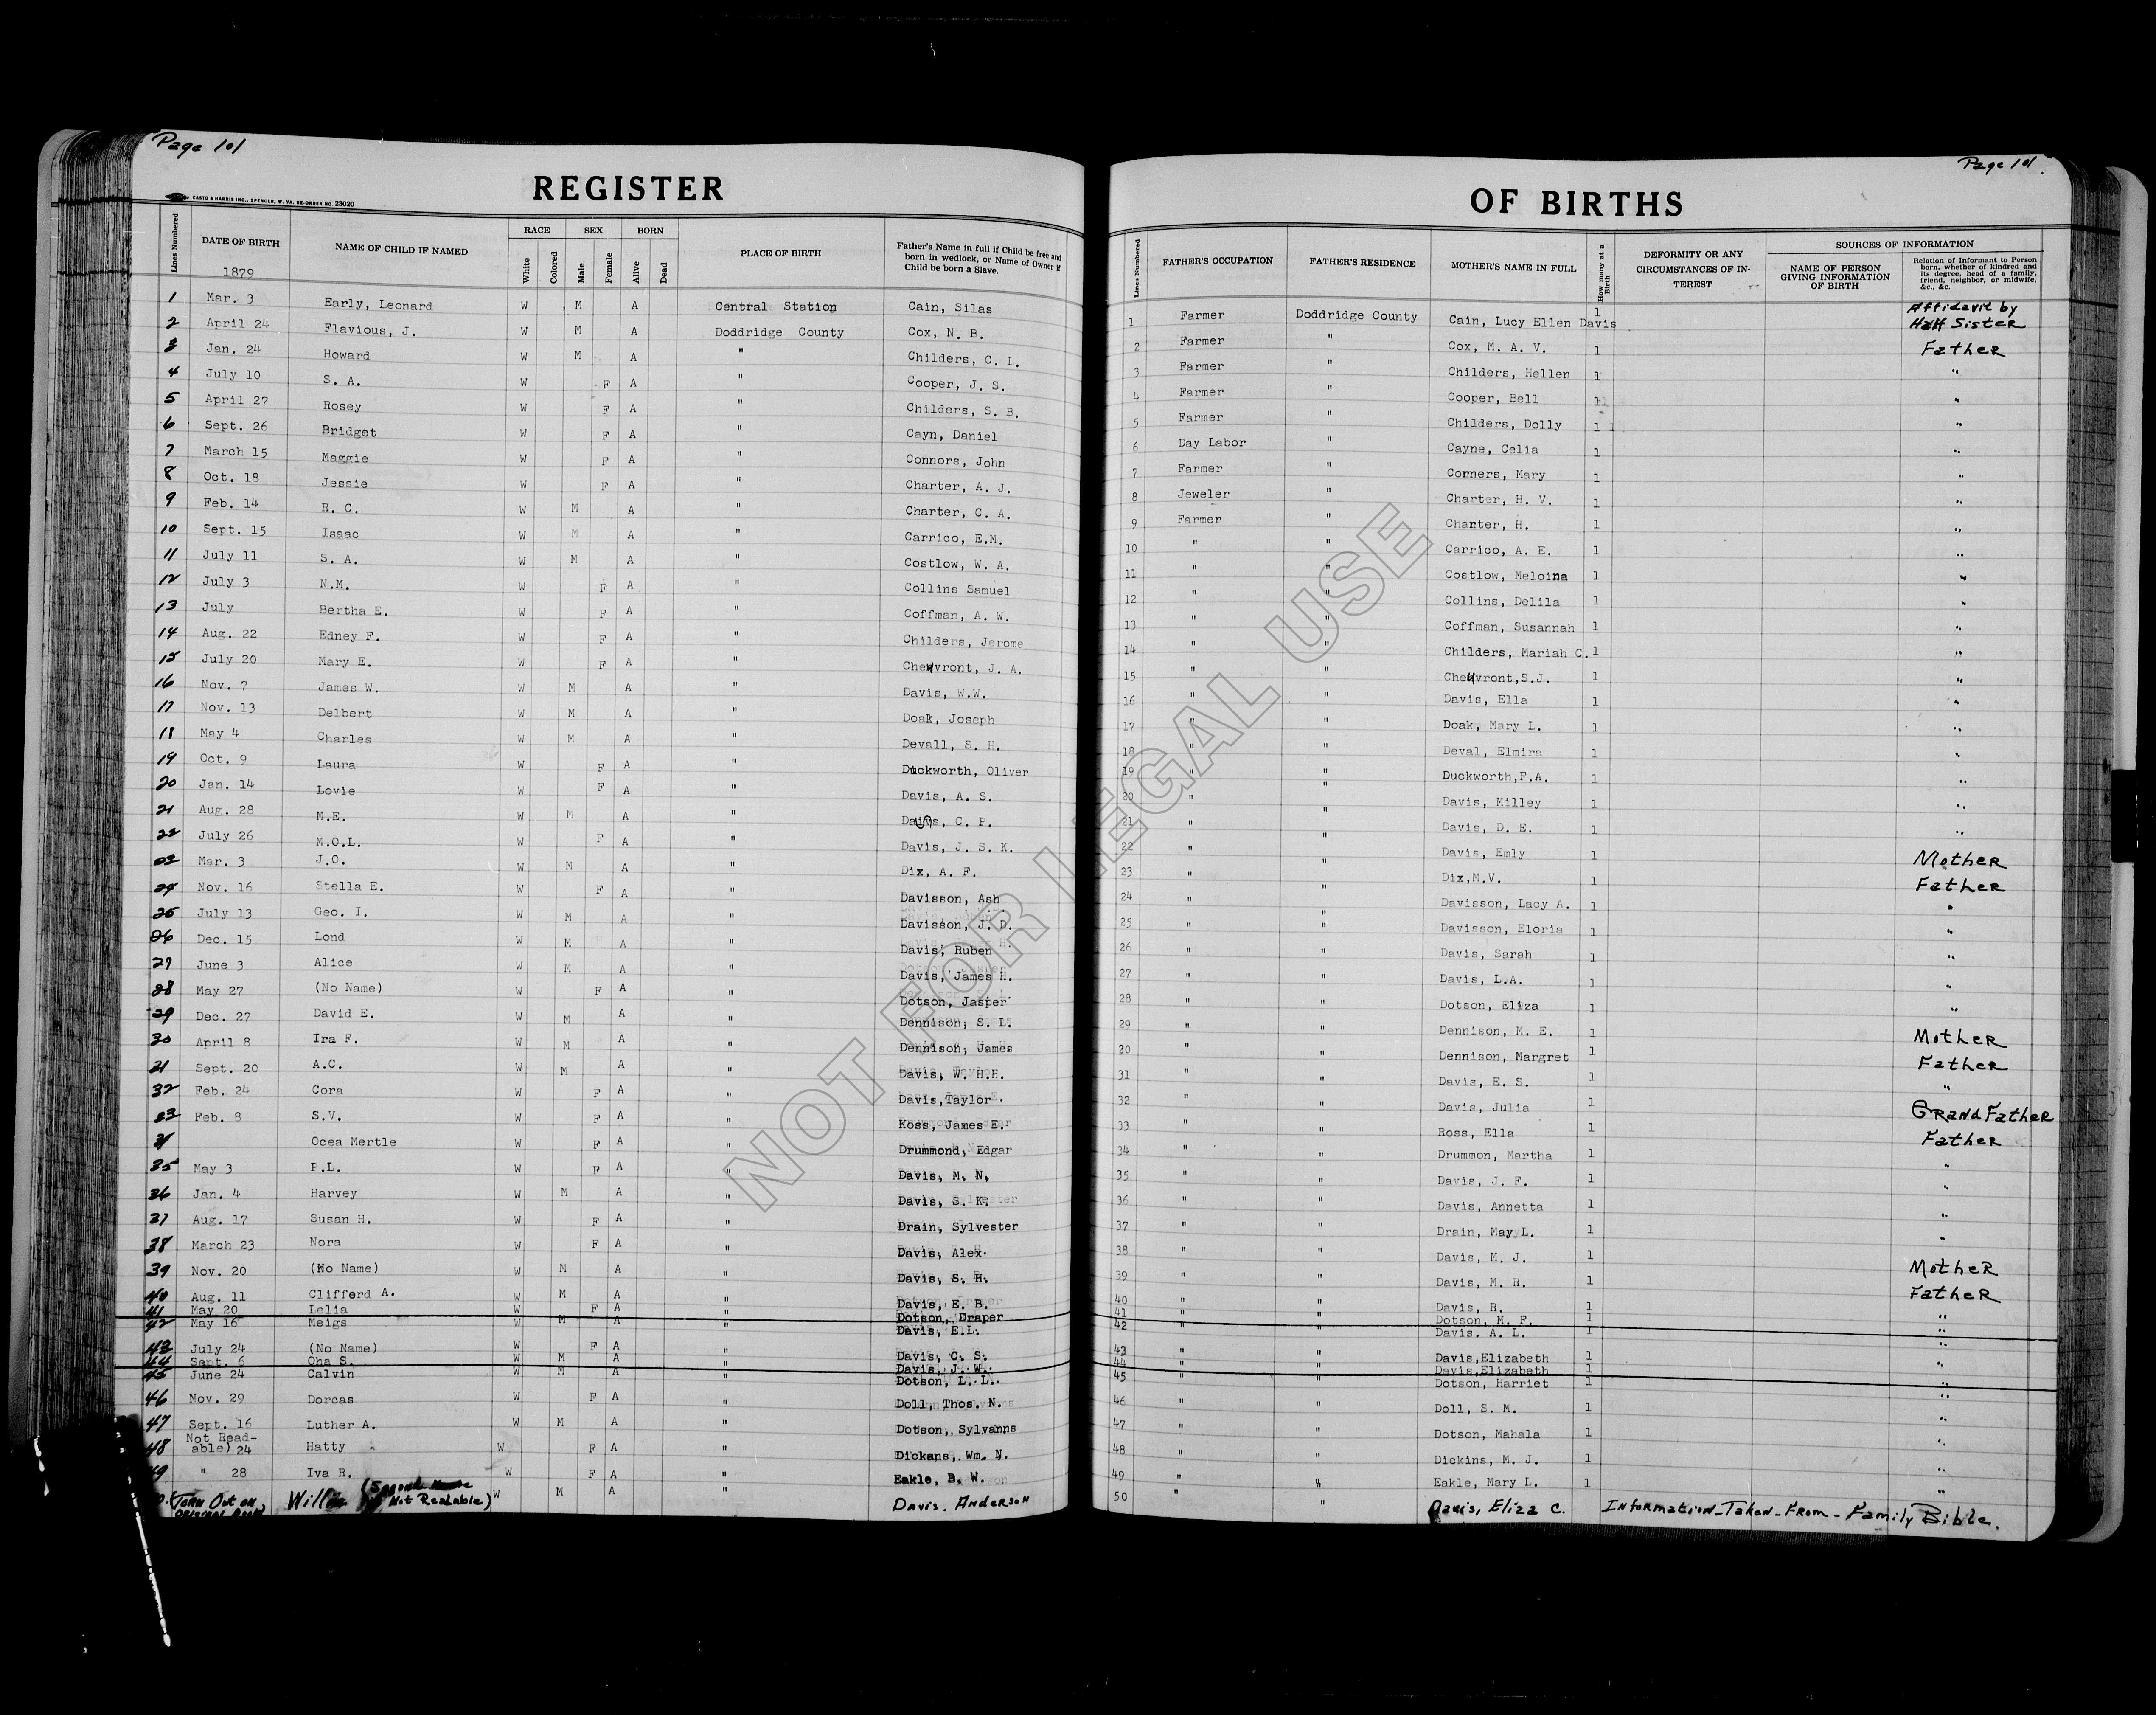 Page 101
REGISTER
CASTO & HARRIS INC., SPENCER, W. VA. RE-ORDER NO. 23020
Lines Numbered | DATE OF BIRTH | NAME OF CHILD IF NAMED | RACE White Colored | SEX Male Female | BORN Alive Dead | PLACE OF BIRTH | Father's Name in full if Child be free and born in wedlock, or Name of Owner if Child be born a Slave.
1879
1 Mar. 3 Early, Leonard W M A Central Station Cain, Silas
2 April 24 Flavious, J. W M A Doddridge County Cox, N. B.
3 Jan. 24 Howard W M A " Childers, C. L.
4 July 10 S. A. W F A " Cooper, J. S.
5 April 27 Rosey W F A " Childers, S. B.
6 Sept. 26 Bridget W F A " Cayn, Daniel
7 March 15 Maggie W F A " Connors, John
8 Oct. 18 Jessie W F A " Charter, A. J.
9 Feb. 14 R. C. W M A " Charter, C. A.
10 Sept. 15 Isaac W M A " Carrico, E.M.
11 July 11 S. A. W M A " Costlow, W. A.
12 July 3 N.M. W F A " Collins Samuel
13 July Bertha E. W F A " Coffman, A. W.
14 Aug. 22 Edney F. W F A " Childers, Jerome
15 July 20 Mary E. W F A " Cheuvront, J. A.
16 Nov. 7 James W. W M A " Davis, W.W.
17 Nov. 13 Delbert W M A " Doak, Joseph
18 May 4 Charles W M A " Devall, S. H.
19 Oct. 9 Laura W F A " Duckworth, Oliver
20 Jan. 14 Lovie W F A " Davis, A. S.
21 Aug. 28 M.E. W M A " Davis, C. P.
22 July 26 M.O.L. W F A " Davis, J. S. K.
23 Mar. 3 J.O. W M A " Dix, A. F.
24 Nov. 16 Stella E. W F A " Davisson, Ash
25 July 13 Geo. I. W M A " Davisson, J. D.
26 Dec. 15 Lond W M A " Davis, Ruben
27 June 3 Alice W M A " Davis, James H.
28 May 27 (No Name) W F A " Dotson, Jasper
29 Dec. 27 David E. W M A " Dennison, S. L.
30 April 8 Ira F. W M A " Dennison, James
31 Sept. 20 A.C. W M A " Davis, W. H.H.
32 Feb. 24 Cora W F A " Davis,Taylor
33 Feb. 8 S.V. W F A " Koss, James E.
34 Ocea Mertle W F A " Drummond, Edgar
35 May 3 P.L. W F A " Davis, M. N,
36 Jan. 4 Harvey W M A " Davis, S. K.
37 Aug. 17 Susan H. W F A " Drain, Sylvester
38 March 23 Nora W F A " Davis, Alex.
39 Nov. 20 (No Name) W M A " Davis, S. H.
40 Aug. 11 Clifford A. W M A " Davis, E. B.
41 May 20 Lelia W F A " Dotson, Draper
42 May 16 Meigs W M A " Davis, E.L.
43 July 24 (No Name) W F A " Davis, C. S.
44 Sept. 6 Oha S. W M A " Davis, J. W.
45 June 24 Calvin W M A " Dotson, L. L.
46 Nov. 29 Dorcas W F A " Doll, Thos. N.
47 Sept. 16 Luther A. W M A " Dotson, Sylvanns
48 Not Read-able) 24 Hatty W F A " Dickans, Wm. N.
49 " 28 Iva R. W F A " Eakle, B. W.
(Torn Out on Willie (Second Not Readable) W M A " Davis. Anderson
Page 101
OF BIRTHS
Lines Numbered | FATHER'S OCCUPATION | FATHER'S RESIDENCE | MOTHER'S NAME IN FULL | How many at a Birth | DEFORMITY OR ANY CIRCUMSTANCES OF INTEREST | SOURCES OF INFORMATION | NAME OF PERSON GIVING INFORMATION OF BIRTH | Relation of Informant to Person born, whether of kindred and its degree, head of a family, friend, neighbor, or midwife, &c., &c.
1 Farmer Doddridge County Cain, Lucy Ellen Davis 1 Affidavit by Half Sister
2 Farmer " Cox, M. A. V. 1 Father
3 Farmer " Childers, Hellen 1 "
4 Farmer " Cooper, Bell 1 "
5 Farmer " Childers, Dolly 1 "
6 Day Labor " Cayne, Celia 1 "
7 Farmer " Corners, Mary 1 "
8 Jeweler " Charter, H. V. 1 "
9 Farmer " Charter, H. 1 "
10 " " Carrico, A. E. 1 "
11 " " Costlow, Meloina 1 "
12 " " Collins, Delila 1 "
13 " " Coffman, Susannah 1 "
14 " " Childers, Mariah C. 1 "
15 " " Cheuvront,S.J. 1 "
16 " " Davis, Ella 1 "
17 " " Doak, Mary L. 1 "
18 " " Deval, Elmira 1 "
19 " " Duckworth,F.A. 1 "
20 " " Davis, Milley 1 "
21 " " Davis, D. E. 1 "
22 " " Davis, Emly 1 Mother
23 " " Dix,M.V. 1 Father
24 " " Davisson, Lacy A. 1 "
25 " " Davisson, Eloria 1 "
26 " " Davis, Sarah 1 "
27 " " Davis, L.A. 1 "
28 " " Dotson, Eliza 1 "
29 " " Dennison, M. E. 1 Mother
30 " " Dennison, Margret 1 Father
31 " " Davis, E. S. 1 "
32 " " Davis, Julia 1 GrandFather
33 " " Ross, Ella 1 Father
34 " " Drummon, Martha 1 "
35 " " Davis, J. F. 1 "
36 " " Davis, Annetta 1 "
37 " " Drain, May L. 1 "
38 " " Davis, M. J. 1 Mother
39 " " Davis, M. H. 1 Father
40 " " Davis, R. 1 "
41 " " Dotson, M. F. 1 "
42 " " Davis. A. L. 1 "
43 " " Davis,Elizabeth 1 "
44 " " Davis,Elizabeth 1 "
45 " " Dotson, Harriet 1 "
46 " " Doll, S. M. 1 "
47 " " Dotson, Mahala 1 "
48 " " Dickins, M. J. 1 "
49 " " Eakle, Mary L. 1 "
50 " " Davis, Eliza C. Information-Taken-From-Family Bible.
NOT FOR LEGAL USE